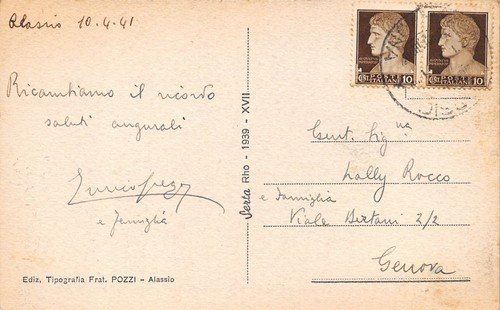 Alassio 10.4.41
Ricambiamo il ricordo
saluti augurali
e famiglia
Ediz. Tipografia Frat. POZZI – Alassio
Serta Rho - 1939 - XVII
POSTE
ITALIANE
10
POSTE
ITALIANE
10
Gent. Sig.na
Lally Rocco
e famiglia
Viale Bertani 2/2
Genova